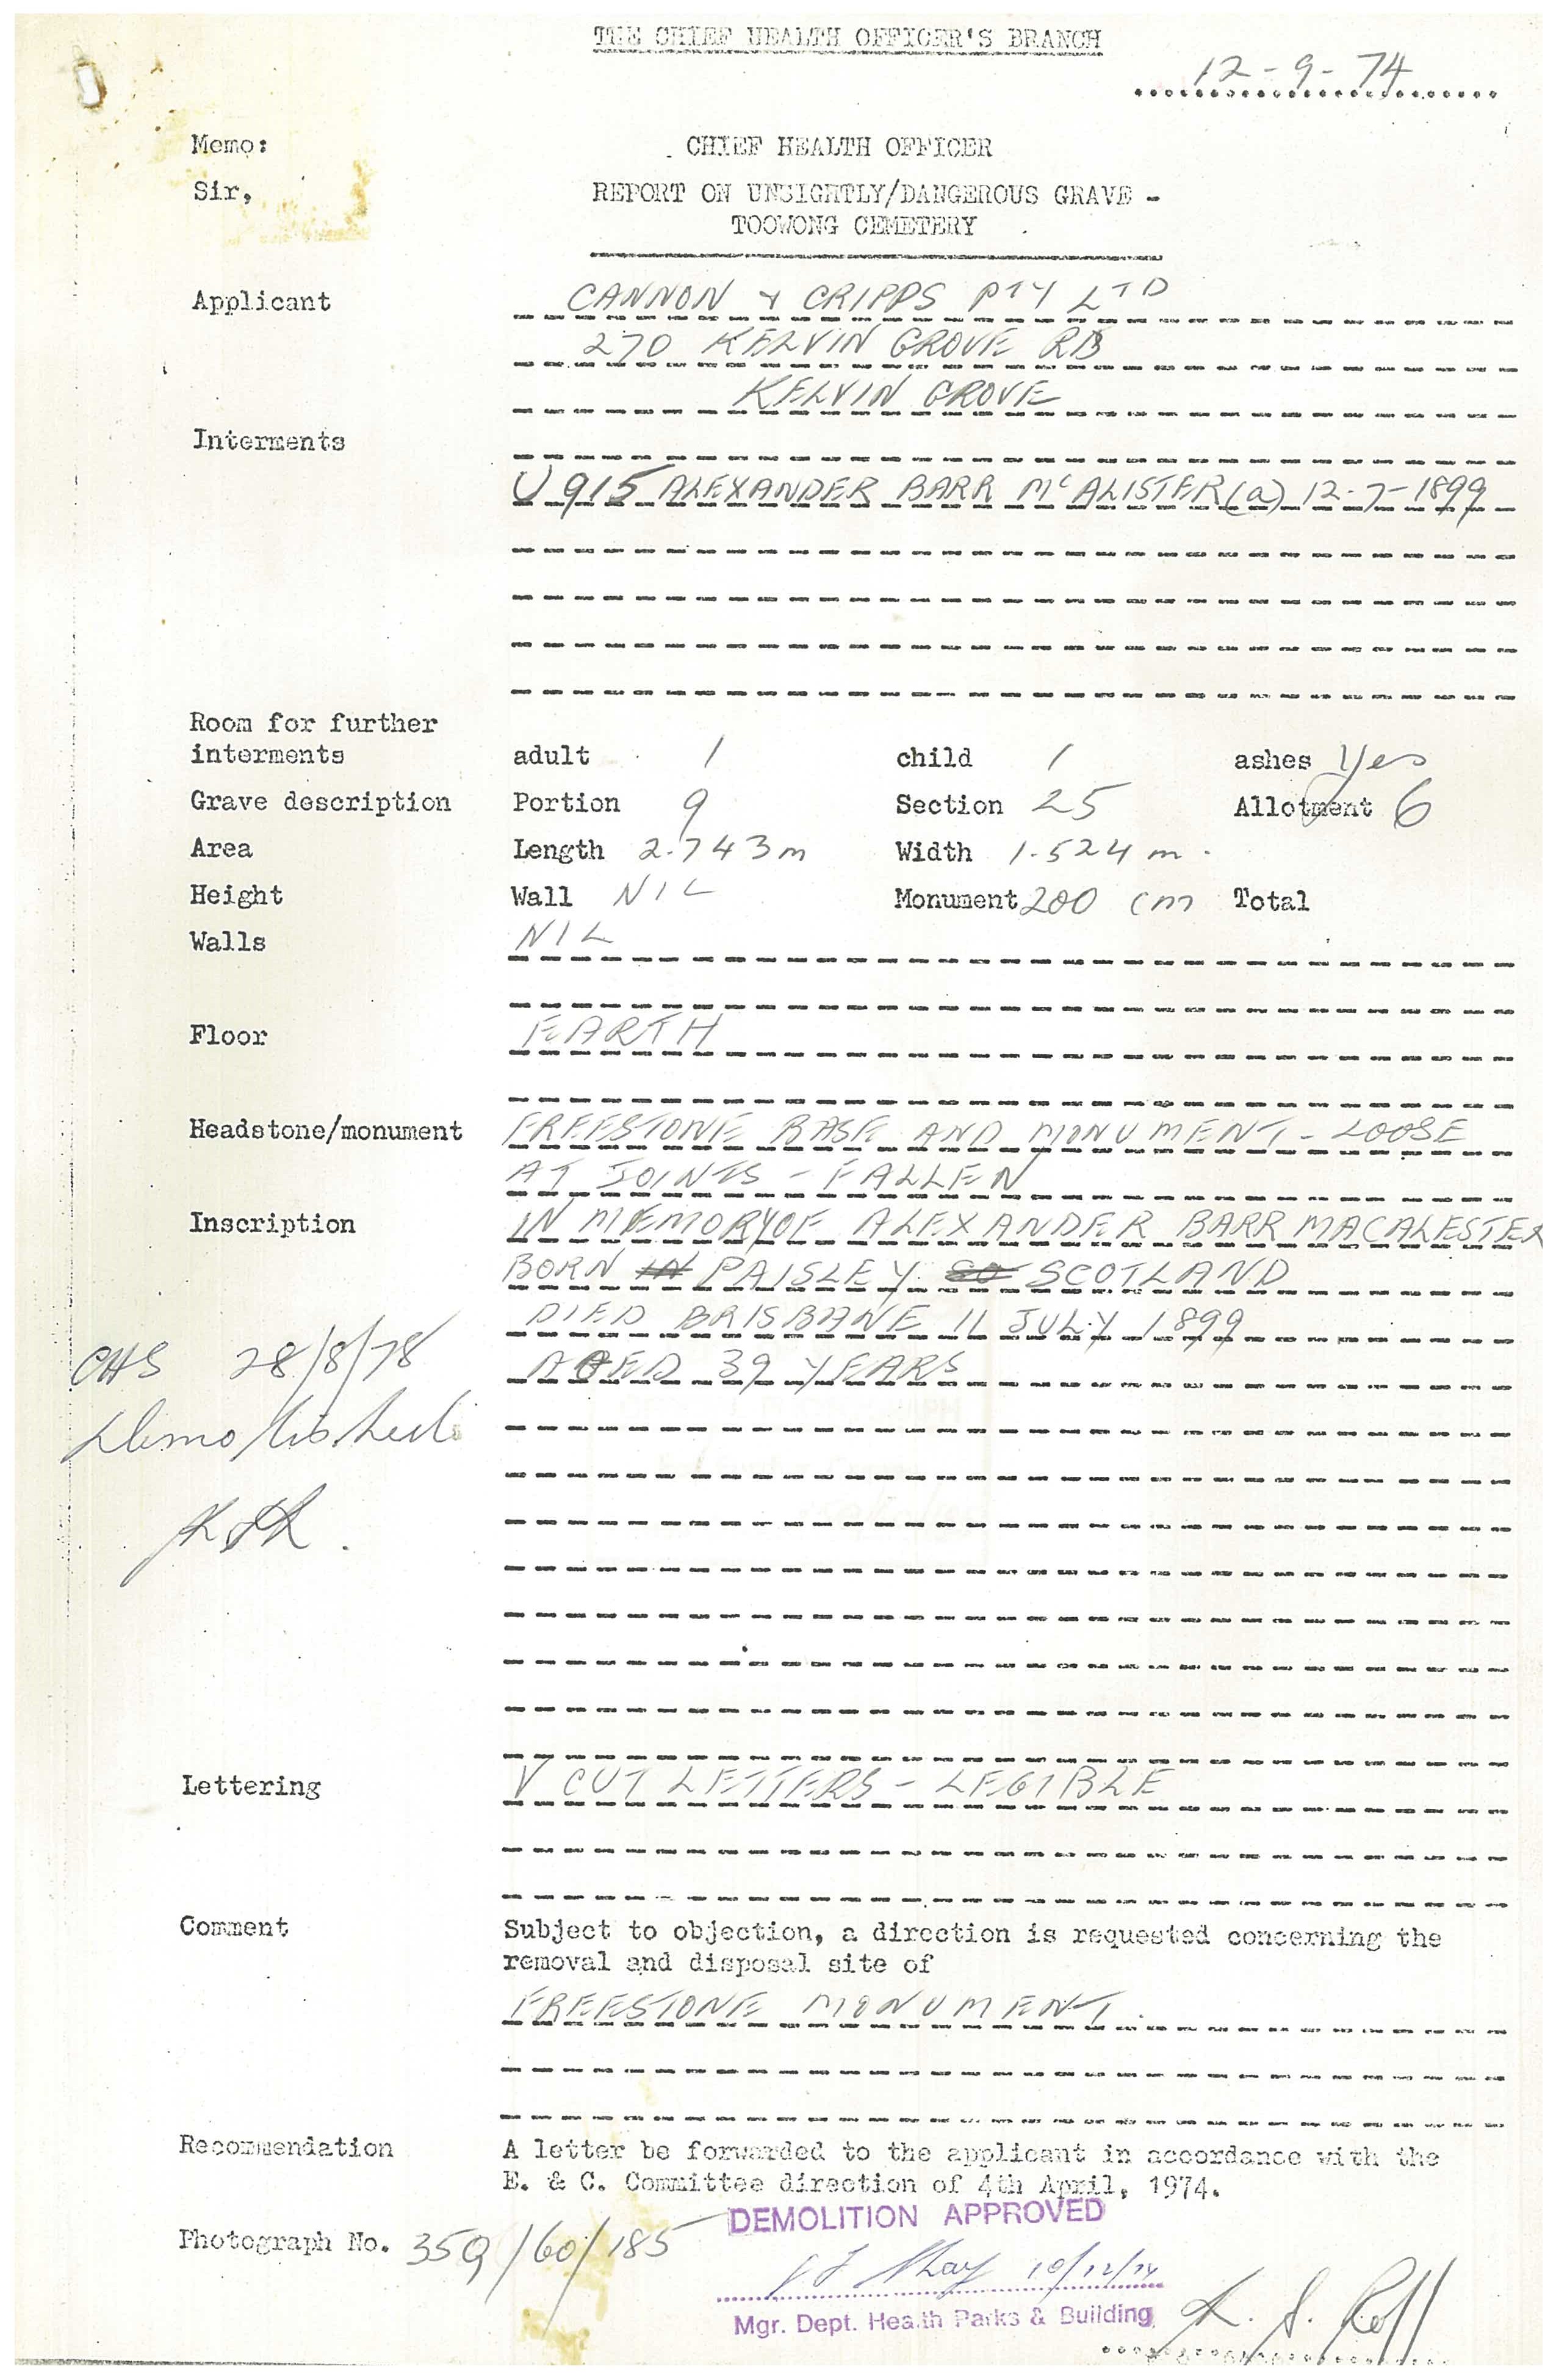 THE CHIEF HEALTH OFFICER'S BRANCH
12-9-74
Memo: CHIEF HEALTH OFFICER
Sir, REPORT ON UNSIGHTLY/DANGEROUS GRAVE -
TOOWONG CEMETERY
Applicant CANNON & CRIPPS PTY LTD
270 KELVIN GROVE RD
KELVIN GROVE
Interments
U915 ALEXANDER BARR McALISTER (a) 12-7-1899
Room for further
interments adult 1 child 1 ashes Yes
Grave description Portion 9 Section 25 Allotment 6
Area Length 2.743m Width 1.524 m.
Height Wall NIL Monument 200 cm Total
Walls NIL
Floor EARTH
Headstone/monument FREESTONE BASE AND MONUMENT - LOOSE
AT JOINTS - FALLEN
Inscription IN MEMORY OF ALEXANDER BARR MACALESTER
BORN IN PAISLEY SO SCOTLAND
DIED BRISBANE 11 JULY 1899
AGED 39 YEARS
CHS 28/8/78
Demolished
Lettering V CUT LETTERS - LEGIBLE
Comment Subject to objection, a direction is requested concerning the
removal and disposal site of
FREESTONE MONUMENT.
Recommendation A letter be forwarded to the applicant in accordance with the
E. & C. Committee direction of 4th April, 1974.
DEMOLITION APPROVED
Photograph No. 35Q/60/185
10/12/74
Mgr. Dept. Health Parks & Building